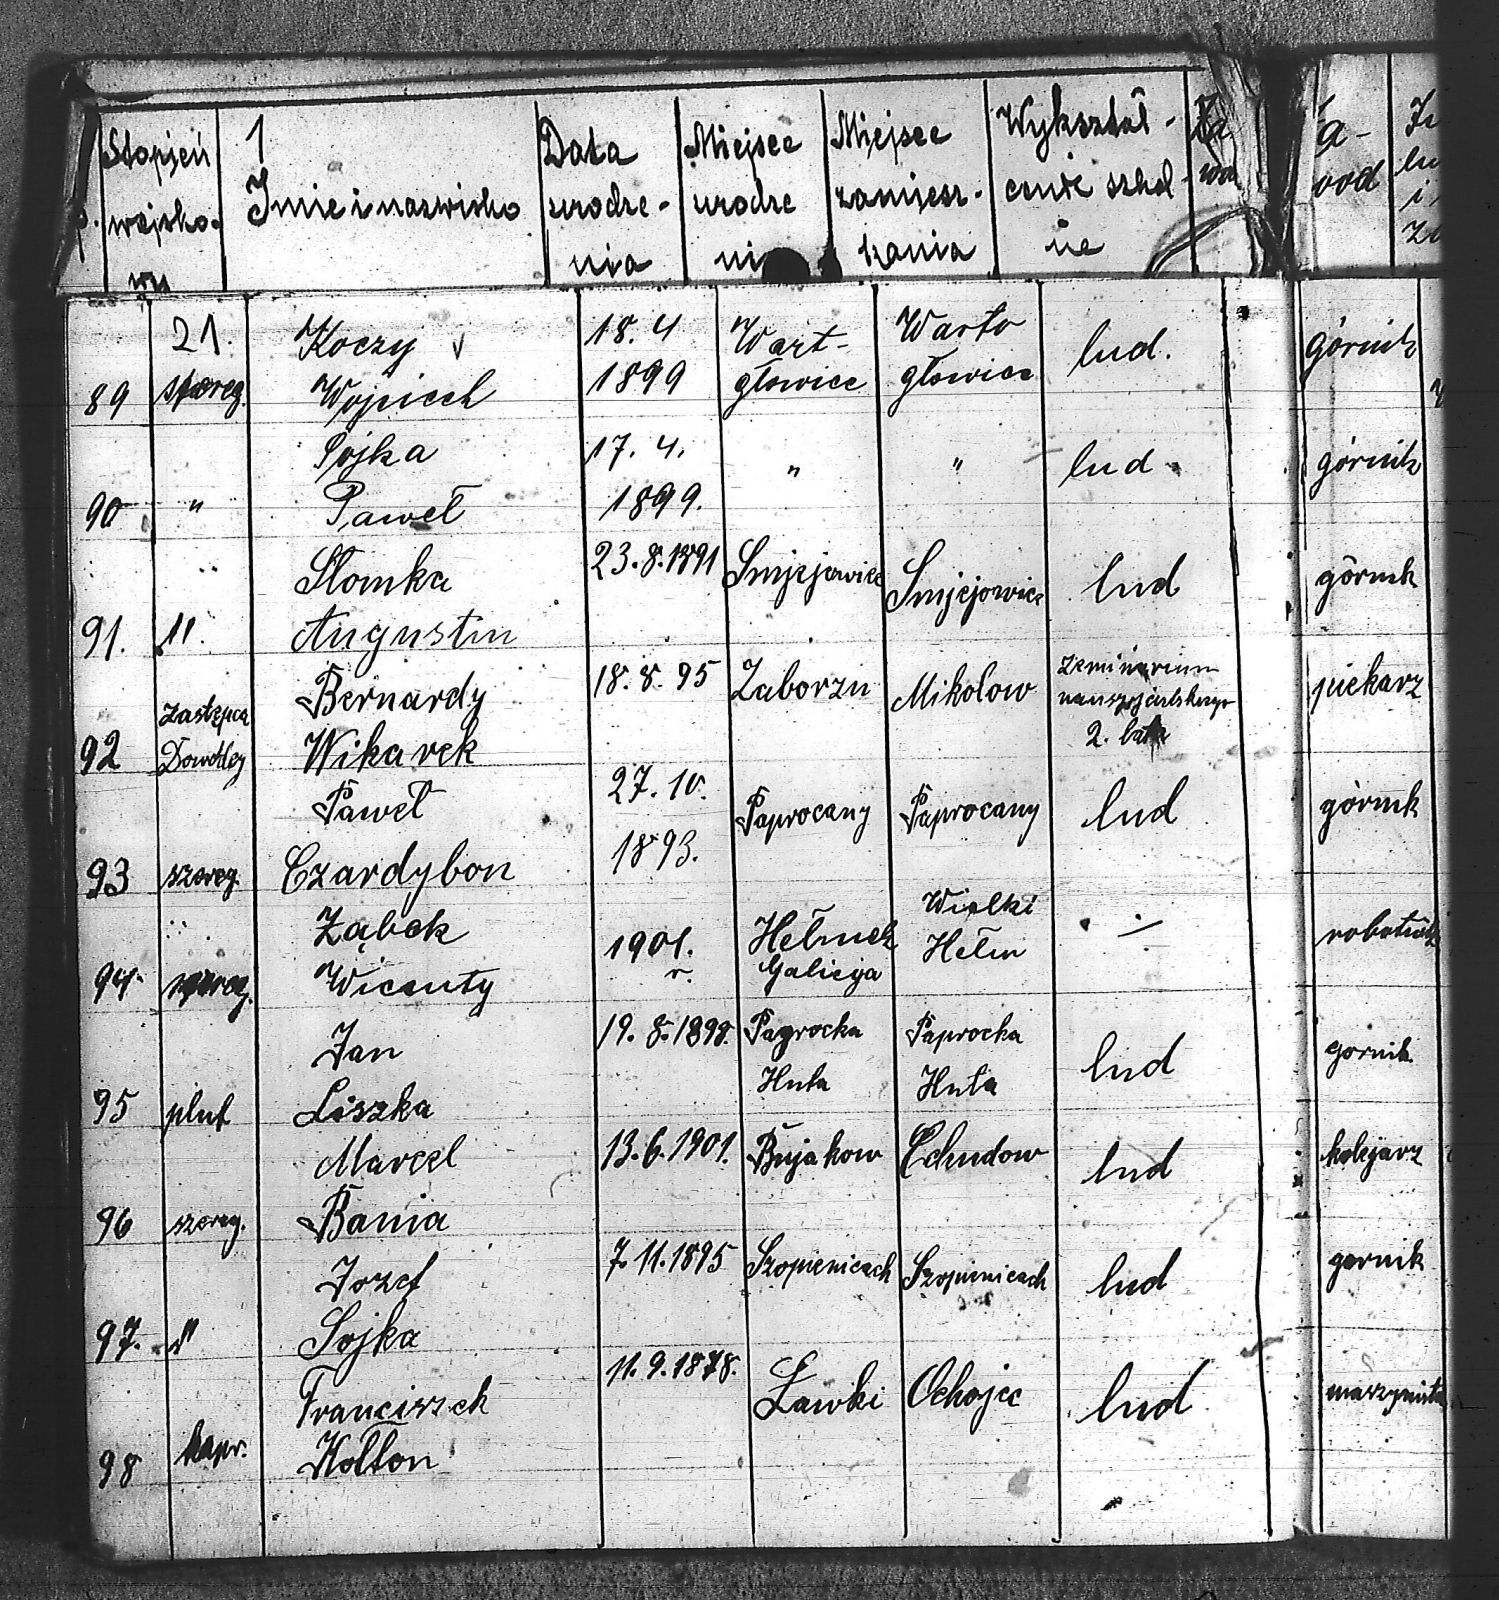 Stopień wojsko- wy
1 Imie i nazwisko
Data urodze- nia
Miejsce urodze
Miejsce zamiesz- kania
Wykształ- cenie szkol ne
Za
a- vod
89 21. szereg. Koczy Wojciech 18. 4 1899 Wart- głowiec Warto głowiec lud. górnik
90 " Sojka Paweł 17. 4. 1899. " " lud. górnik
91. " Słomka Augustin 23.8.1891 Smjejowice Smjejowice lud górnik
92 Zastępca Dowódcy Bernardy Wikarek 18. 8. 95 Zaborzu Mikolow 2. lata piekarz
93 szereg. Paweł Czardybon 27. 10. 1893. Paprocany Paprocany lud górnik
94. szereg. Ząbek Wicenty 1901. r. Hełmek Galicija Wielki Hełm ÷ robotnik
95 plut Jan Liszka 19. 8. 1898. Paprocka Huta Paprocka Huta lud gornik
96 szereg. Marcel Bania 13. 6. 1901. Bujakow Chudow lud kolejarz
97. " Jozef Sojka 7. 11. 1895 Szopienicach Szopienicach lud gornik
98 kapr. Franciszek Kołton 11. 9. 1878. Ławki Ochojec lud